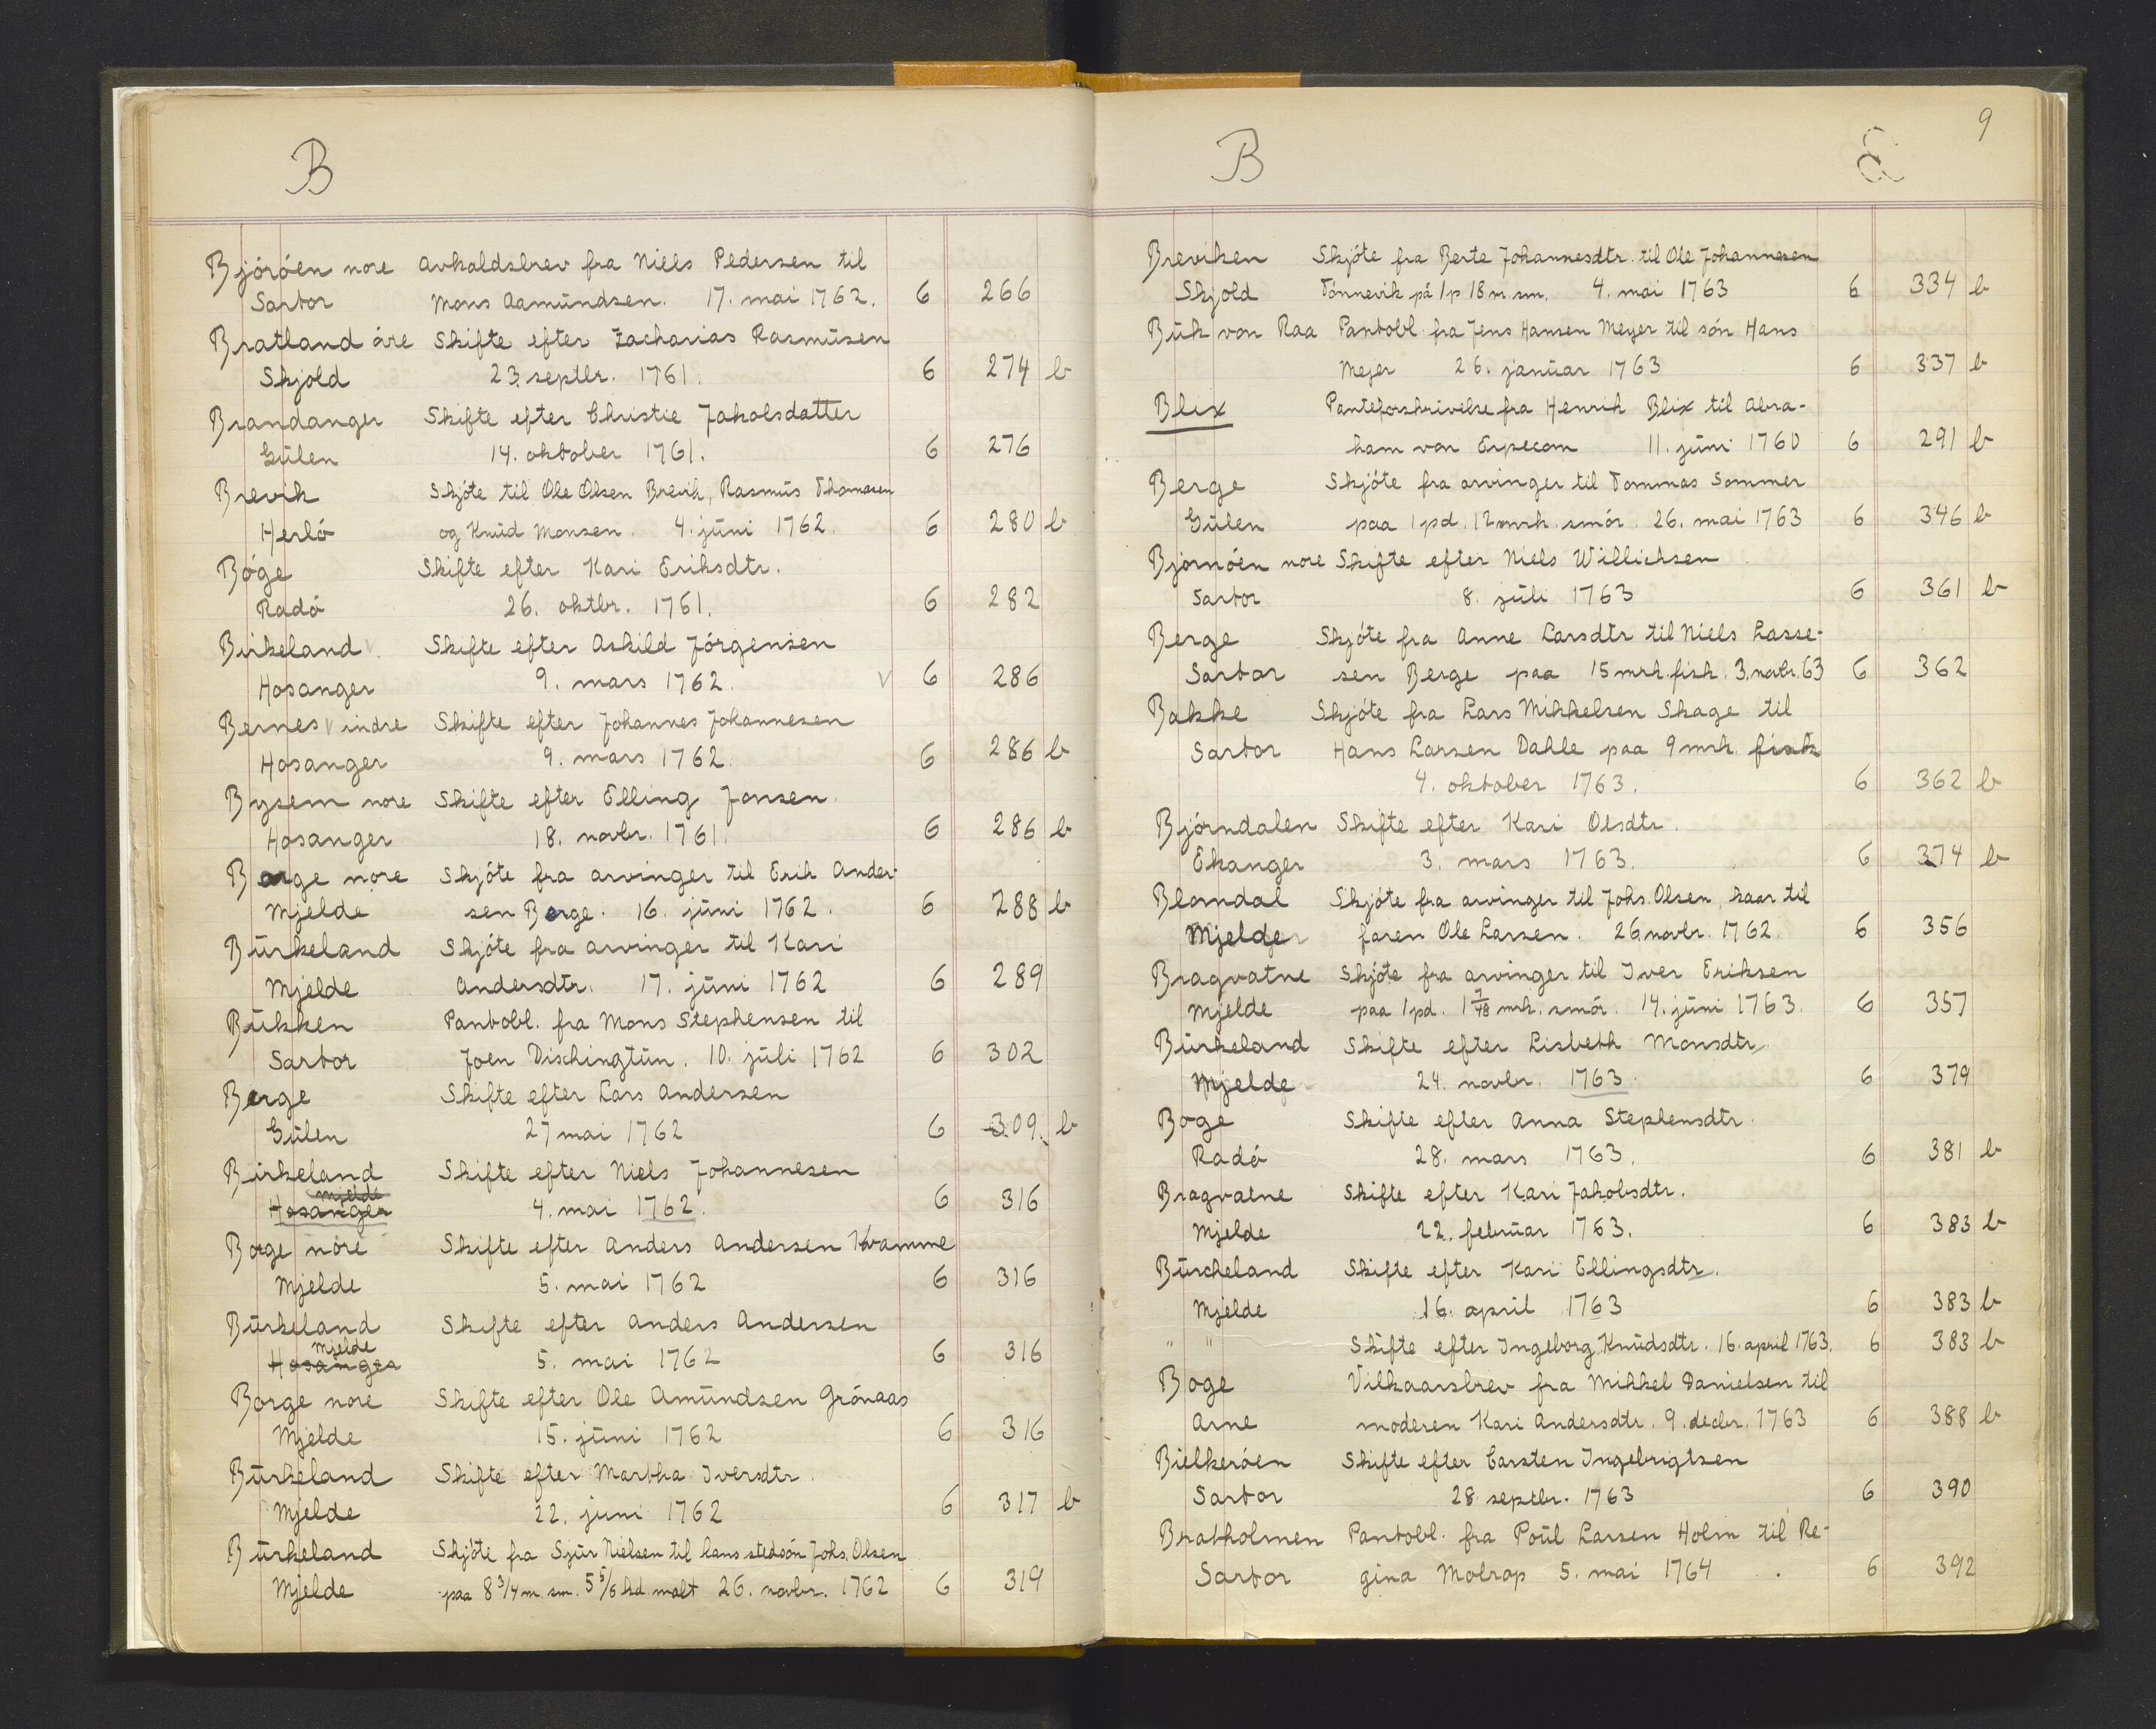 B
Björöen nore Avkaldsbrev fra Niels Pedersen til
Sartor Mons Aamundsen. 17. mai 1762. 6 266
Bratland öre Skifte efter Zacharias Rasmusen
Skjold 23. septbr. 1761. 6 274 b
Brandanger Skifte efter Christie Jakobsdatter
Gülen 14. oktober 1761. 6 276
Brevik Skjöte til Ole Olsen Brevik, Rasmus Thomasen
Herlö og Knüd Monsen. 4. jüni 1762. 6 280 b
Böge Skifte efter Kari Eriksdtr.
Radö 26. oktbr. 1761. 6 282
Birkeland v. Skifte efter Askild Jörgensen
Hosanger 9. mars 1762. v 6 286
Bernes v indre Skifte efter Johannes Johannesen
Hosanger 9. mars 1762. 6 286 b
Bysem nore Skifte efter Elling Jonsen.
Hosanger 18. novbr. 1761. 6 286 b
Borge nore Skjöte fra arvinger til Erik Ander-
Mjelde sen Borge. 16. jüni 1762. 6 288 b
Bürkeland Skjöte fra arvinger til Kari
Mjelde Andersdtr. 17. jüni 1762 6 289
Bükken Pantobl. fra Mons Stephensen til
Sartor Joen Dischingtün. 10. jüli 1762 6 302
Berge Skifte efter Lars Andersen
Gülen 27 mai 1762 6 309. b
Birkeland Skifte efter Niels Johannesen
Mjelde
Hosanger 4. mai 1762. 6 316
Borge nore Skifte efter Anders Andersen Kvamme
Mjelde 5. mai 1762 6 316
Bürkeland Skifte efter Anders Andersen
Mjelde
Hosanger 5. mai 1762 6 316
Borge nore Skifte efter Ole Amündsen Grönaas
Mjelde 15. jüni 1762 6 316
Bürkeland Skifte efter Martha Iversdtr.
Mjelde 22. juni 1762 6 317 b
Bürkeland Skjöte fra Sjür Nielsen til hans stedsön Johs. Olsen
Mjelde paa 8 3/4 m. sm. 5 5/6 hd malt 26. novbr. 1762 6 319
B 9
Breviken Skjöte fra Berte Johannesdtr. til Ole Johannesen
Skjold Tönnevik på 1 p 18 m. sm. 4. mai 1763 6 334 b
Bük von Raa Pantobl. fra Jens Hansen Meyer til sön Hans
Mejer 26. janüar 1763 6 337 b
Blix Panteforskrivelse fra Henrik Blix til Abra-
ham von Erpecom 11. jüni 1760 6 291 b
Berge Skjöte fra arvinger til Tommas Sommer
Gülen paa 1 pd. 12 mrk. smör. 26. mai 1763 6 346 b
Björnöen nore Skifte efter Niels Willichsen
Sartor 8. jüli 1763 6 361 b
Berge Skjöte fra Anne Larsdtr til Niels Lasse-
Sartor sen Berge paa 15 mrk. fisk. 3. novbr. 63 6 362
Bakke Skjöte fra Lars Mikkelsen Skage til
Sartor Hans Larsen Dahle paa 9 mrk. fisk
4. oktober 1763. 6 362 b
Björndalen Skifte efter Kari Olsdtr.
Ekanger 3. mars 1763. 6 374 b
Blondal Skjöte fra arvinger til Johs. Olsen, kaar til
Mjelde faren Ole Larsen. 26. novbr. 1762. 6 356
Bragvatne Skjöte fra arvinger til Iver Eriksen
Mjelde paa 1 pd. 1 7/48 mrk. smör. 14. jüni 1763. 6 357
Bürkeland Skifte efter Lisbeth Monsdtr.
Mjelde 24. novbr. 1763. 6 379
Boge Skifte efter Anna Stephensdtr.
Radö 28. mars 1763. 6 381 b
Bragvatne Skifte efter Kari Jakobsdtr.
Mjelde 22. februar 1763. 6 383 b
Bürcheland Skifte efter Kari Ellingsdtr.
Mjelde 16. april 1763 6 383 b
" " Skifte efter Ingeborg Knüdsdtr. 16. april 1763. 6 383 b
Boge Vilkaarsbrev fra Mikkel Danielsen til
Arne moderen Kari Andersdtr. 9. decbr. 1763 6 388 b
Bielkeröen Skifte efter Carsten Ingebrigtsen
Sartor 28. septbr. 1763 6 390
Bratholmen Pantobl. fra Poül Larsen Holm til Re-
Sartor gina Molrap 5. mai 1764. 6 392